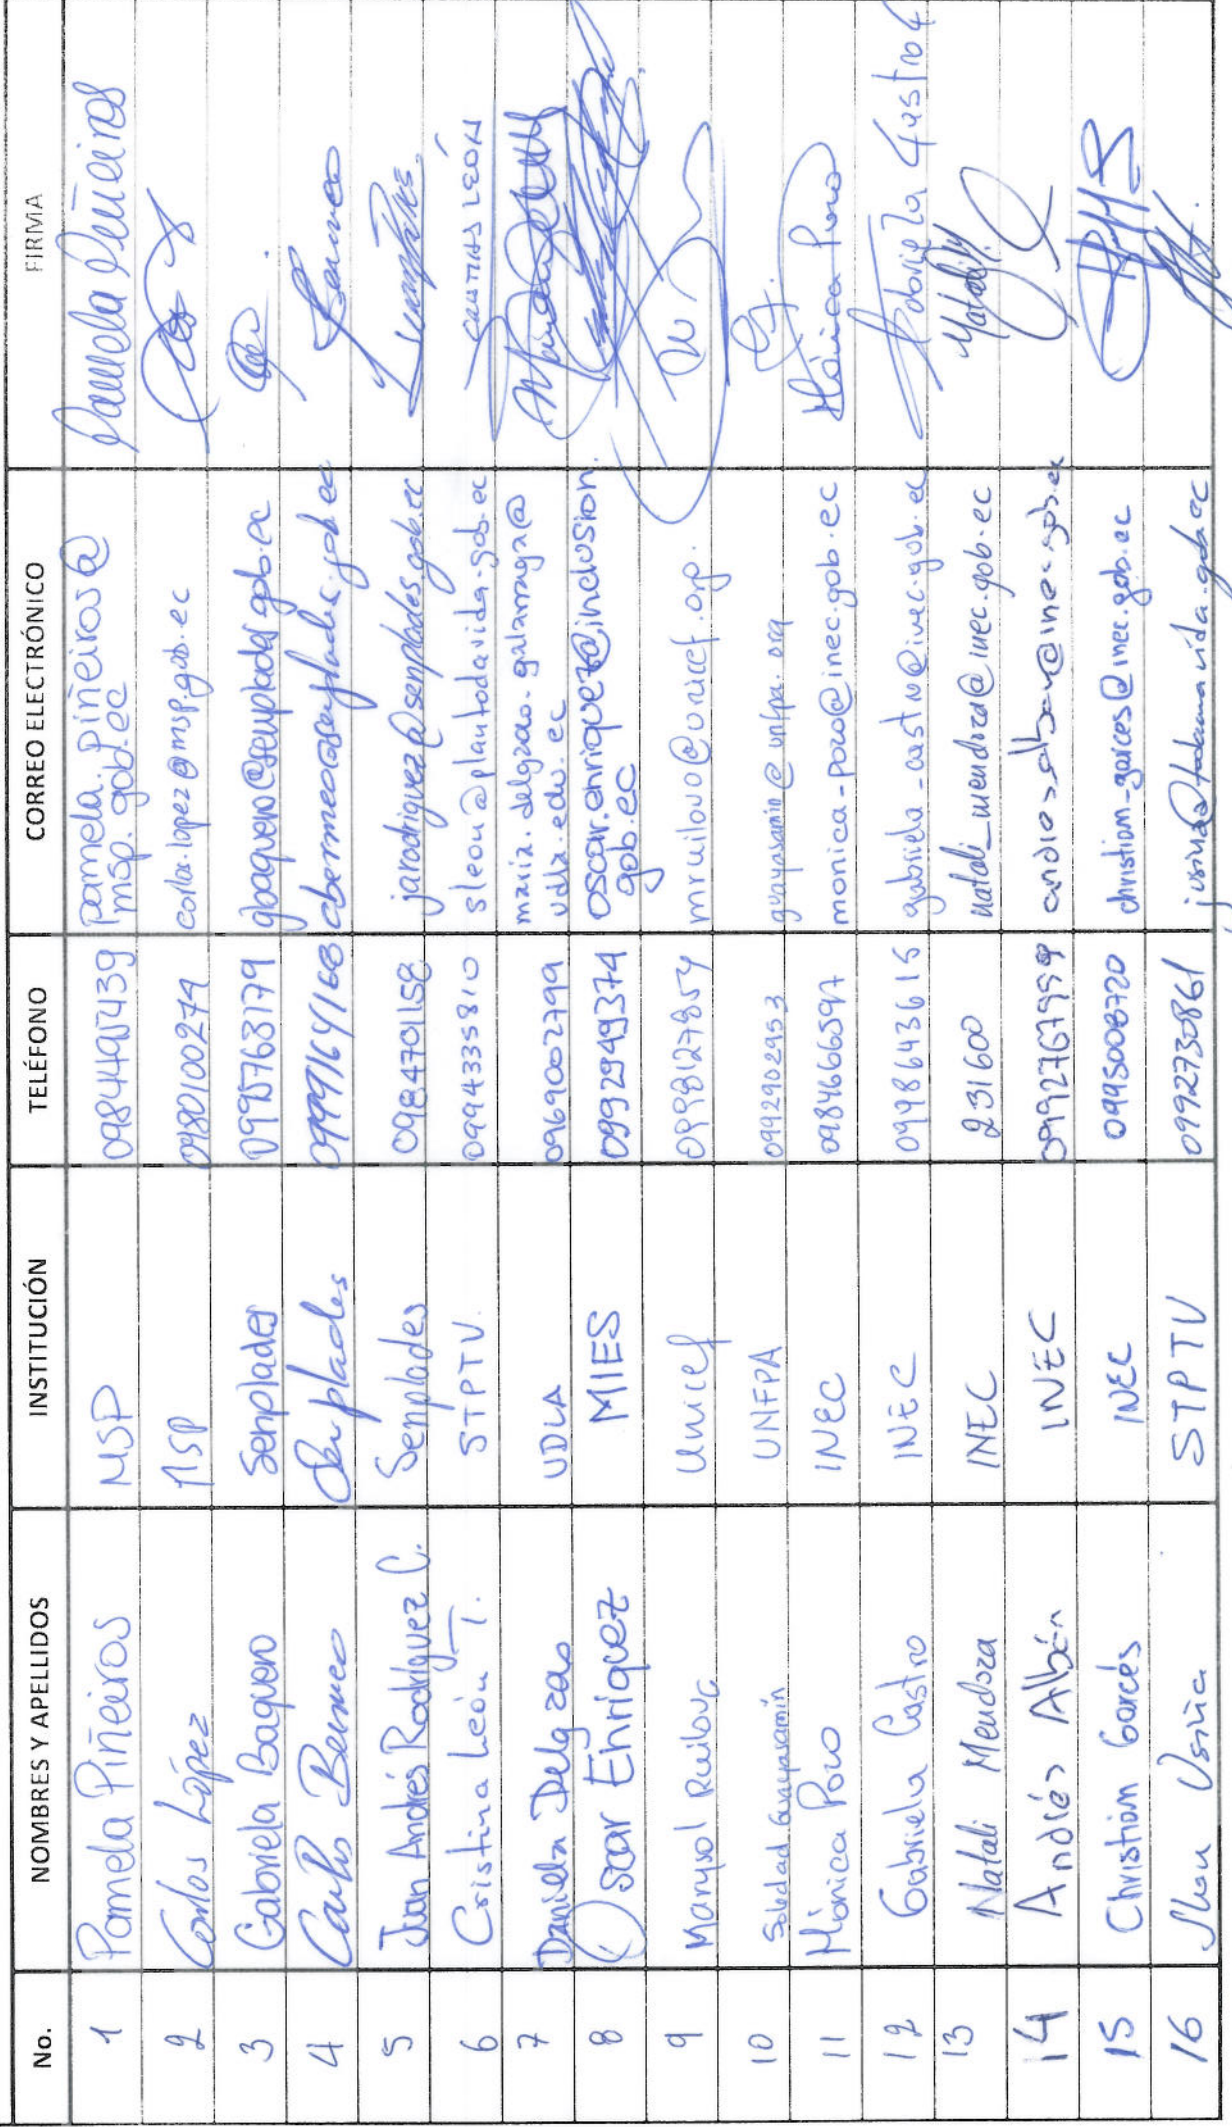 No. NOMBRES Y APELLIDOS INSTITUCIÓN TELÉFONO CORREO ELECTRÓNICO FIRMA
1 Pamela Piñeiros MSP pamela.piñeiros@ Pamela Piñeiros
msp.gob.ec
2 Carlos López MSP 0980100274 carlos.lopez@msp.gob.ec
3 Gabriela Baquero Senplades 0995763179 gbaquero@senplades.gob.ec
4 Carlos Bermeo Senplades 0999164168 cbermeo@senplades.gob.ec
5 Juan Andrés Rodríguez C. Senplades 0984701158 jarodriguez@senplades.gob.ec
6 Cristina León T. STPTV. 0994335810 sleon@plantodavida.gob.ec
7 Daniela Delgado UDLA 0969002799 maria.delgado.galarraga@
udla.edu.ec
8 Oscar Enriquez MIES 0992949374 oscar.enriquez@inclusion.
gob.ec
9 Marysol Ruilova Unicef 0999812785 mruilova@unicef.org.
10 Soledad Guayasamín UNFPA 0992902953 guayasamin@unfpa.org
11 Mónica Pozo INEC 0984666597 monica-pozo@inec.gob.ec Mónica Pozo
12 Gabriela Castro INEC 0998643616 gabriela-castro@inec.gob.ec Gabriela Castro
13 Natali Mendoza INEC 231600 natali_mendoza@inec.gob.ec Nataly
14 Andrés Albán INEC andres_alban@inec.gob.ec
15 Christian Garcés INEC 0995008720 christian_garces@inec.gob.ec
16 Usiña STPTV 0992730861